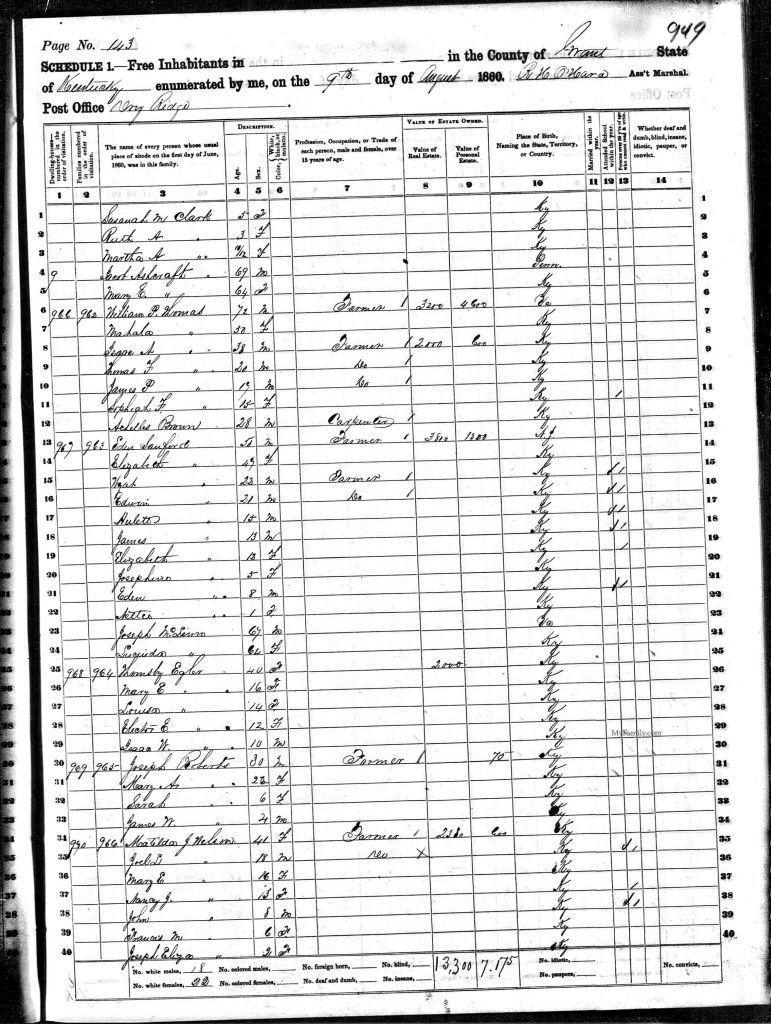 949
Page No. 143
SCHEDULE 1.—Free Inhabitants in in the County of Grant State
of Kentucky enumerated by me, on the 9th day of August 1860. R H O'Hara Ass't Marshal.
Post Office Dry Ridge
Dwelling-houses—numbered in the order of visitation.
Families numbered in the order of visitation.
The name of every person whose usual place of abode on the first day of June, 1860, was in this family.
DESCRIPTION.
Age.
Sex.
Color, White, black, or mulatto.
Profession, Occupation, or Trade of each person, male and female, over 15 years of age.
VALUE OF ESTATE OWNED.
Value of Real Estate.
Value of Personal Estate.
Place of Birth, Naming the State, Territory, or Country.
Married within the year.
Attended School within the year.
Whether deaf and dumb, blind, insane, idiotic, pauper, or convict.
1 2 3 4 5 6 7 8 9 10 11 12 13 14
1 Susanah M Clark 5 F Ky 1
2 Ruth A " 3 F Ky 2
3 Martha A " F Ky 3
4 Ashcraft 69 M Tenn 4
5 Mary E. " 64 F Ky 5
6 966 962 William P. Thomas 72 M Farmer 1 3200 4600 Va 6
7 Mahala " F Ky 7
8 Jesse A " 38 M Farmer 1 2000 600 Ky 8
9 Thomas F " 20 M Do 1 Ky 9
10 James P " M Do 1 Ky 10
11 F. " 15 F Ky 1 11
12 Achilles Brown 28 M Carpenter 1 Ky 12
13 967 963 Eden Sanford M Farmer 1 3800 1300 N.J 13
14 Elizabeth " 47 F Ky 14
15 " 22 M Farmer 1 Ky 15
16 Edwin " 21 M Do 1 Ky 16
17 " 15 M Ky 17
18 James " 13 M Ky 18
19 Elizabeth " 13 F Ky 1 19
20 Josephine " 5 F Ky 20
21 Eden " 8 M Ky 21
22 " 1 F Ky 22
23 Joseph 67 M Va 23
24 Lucinda " 64 F Ky 24
25 968 964 40 F 2000 Ky 25
26 Mary E " 16 F Ky 26
27 Louisa " 14 F Ky 27
28 E " 12 F Ky 28
29 Isaac W. " 10 M Ky 29
30 969 965 Joseph Roberts 30 M Farmer 1 75 Ky 30
31 Mary A " F Ky 31
32 Sarah " 6 F Ky 32
33 James W. " 4 M Ky 33
34 966 Matilda J Nelson 41 F Farmer 1 600 Ky 34
35 " 18 M Do X Ky 35
36 Mary E " 16 F Ky 36
37 Nancy J. " 13 F Ky 1 37
38 John " 8 M Ky 38
39 Francis M " 6 F Ky 39
40 Joseph Eliza " 2 F Ky 40
No. white males, 18 No. colored males, No. foreign born, No. blind, 13,300 7.175 No. idiotic, No. convicts,
No. white females, 22 No. colored females, No. deaf and dumb, No. insane, No. paupers,
MyFamily.com